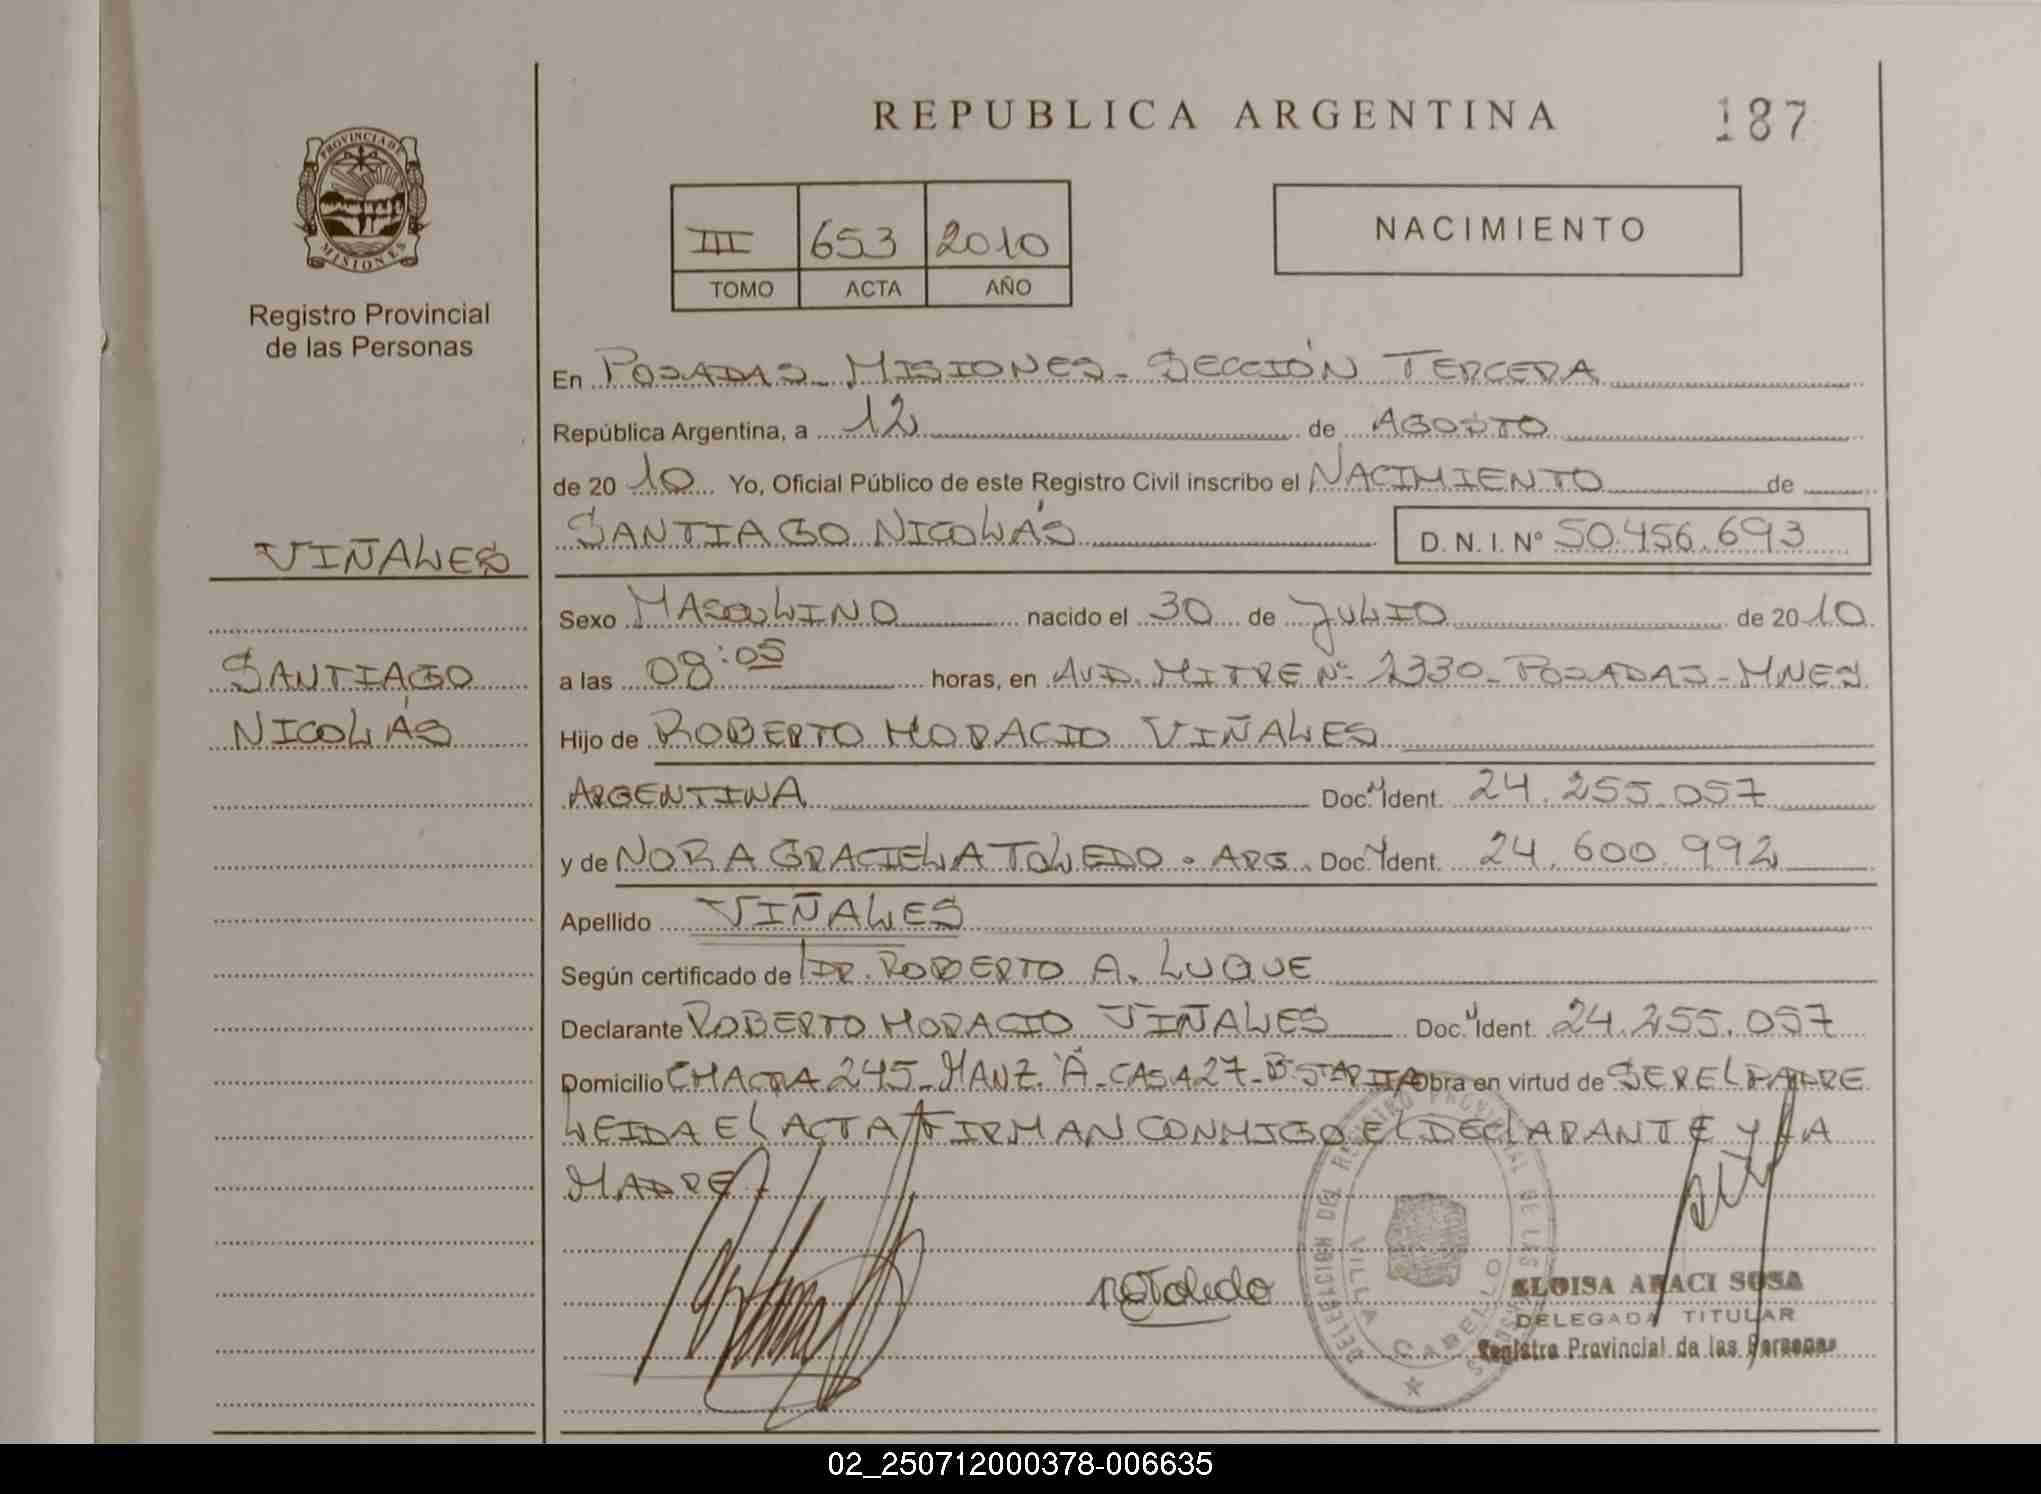 REPUBLICA ARGENTINA
187
PROVINCIA DE
MISIONES
Registro Provincial
de las Personas
III 653 2010
TOMO ACTA AÑO
NACIMIENTO
En POSADAS - MISIONES - SECCIÓN TERCERA
República Argentina, a 12 de AGOSTO
de 20 10 Yo, Oficial Público de este Registro Civil inscribo el NACIMIENTO de
SANTIAGO NICOLÁS D. N. I. Nº 50.456.693
VIÑALES
SANTIAGO
NICOLÁS
Sexo MASCULINO nacido el 30 de JULIO de 20 10
a las 08:05 horas, en AVD. MITRE Nº 2330 - POSADAS - MNES
Hijo de ROBERTO HORACIO VIÑALES
ARGENTINA Doc. Ident. 24.255.057
y de NORA GRACIELA TOLEDO - ARG. Doc. Ident. 24.600.992
Apellido VIÑALES
Según certificado de DR. ROBERTO A. LUQUE
Declarante ROBERTO HORACIO VIÑALES Doc. Ident. 24.255.057
Domicilio CHACRA 245 - MANZ. "A" - CASA 27 - Bº Obra en virtud de SER EL PADRE
LEIDA EL ACTA FIRMAN CONMIGO EL DECLARANTE Y LA
MADRE
NGToledo
DELEGACION DEL REGISTRO PROVINCIAL DE LAS PERSONAS
VILLA CABELLO
ELOISA ARACI SOSA
DELEGADA TITULAR
Registro Provincial de las Personas
02_250712000378-006635